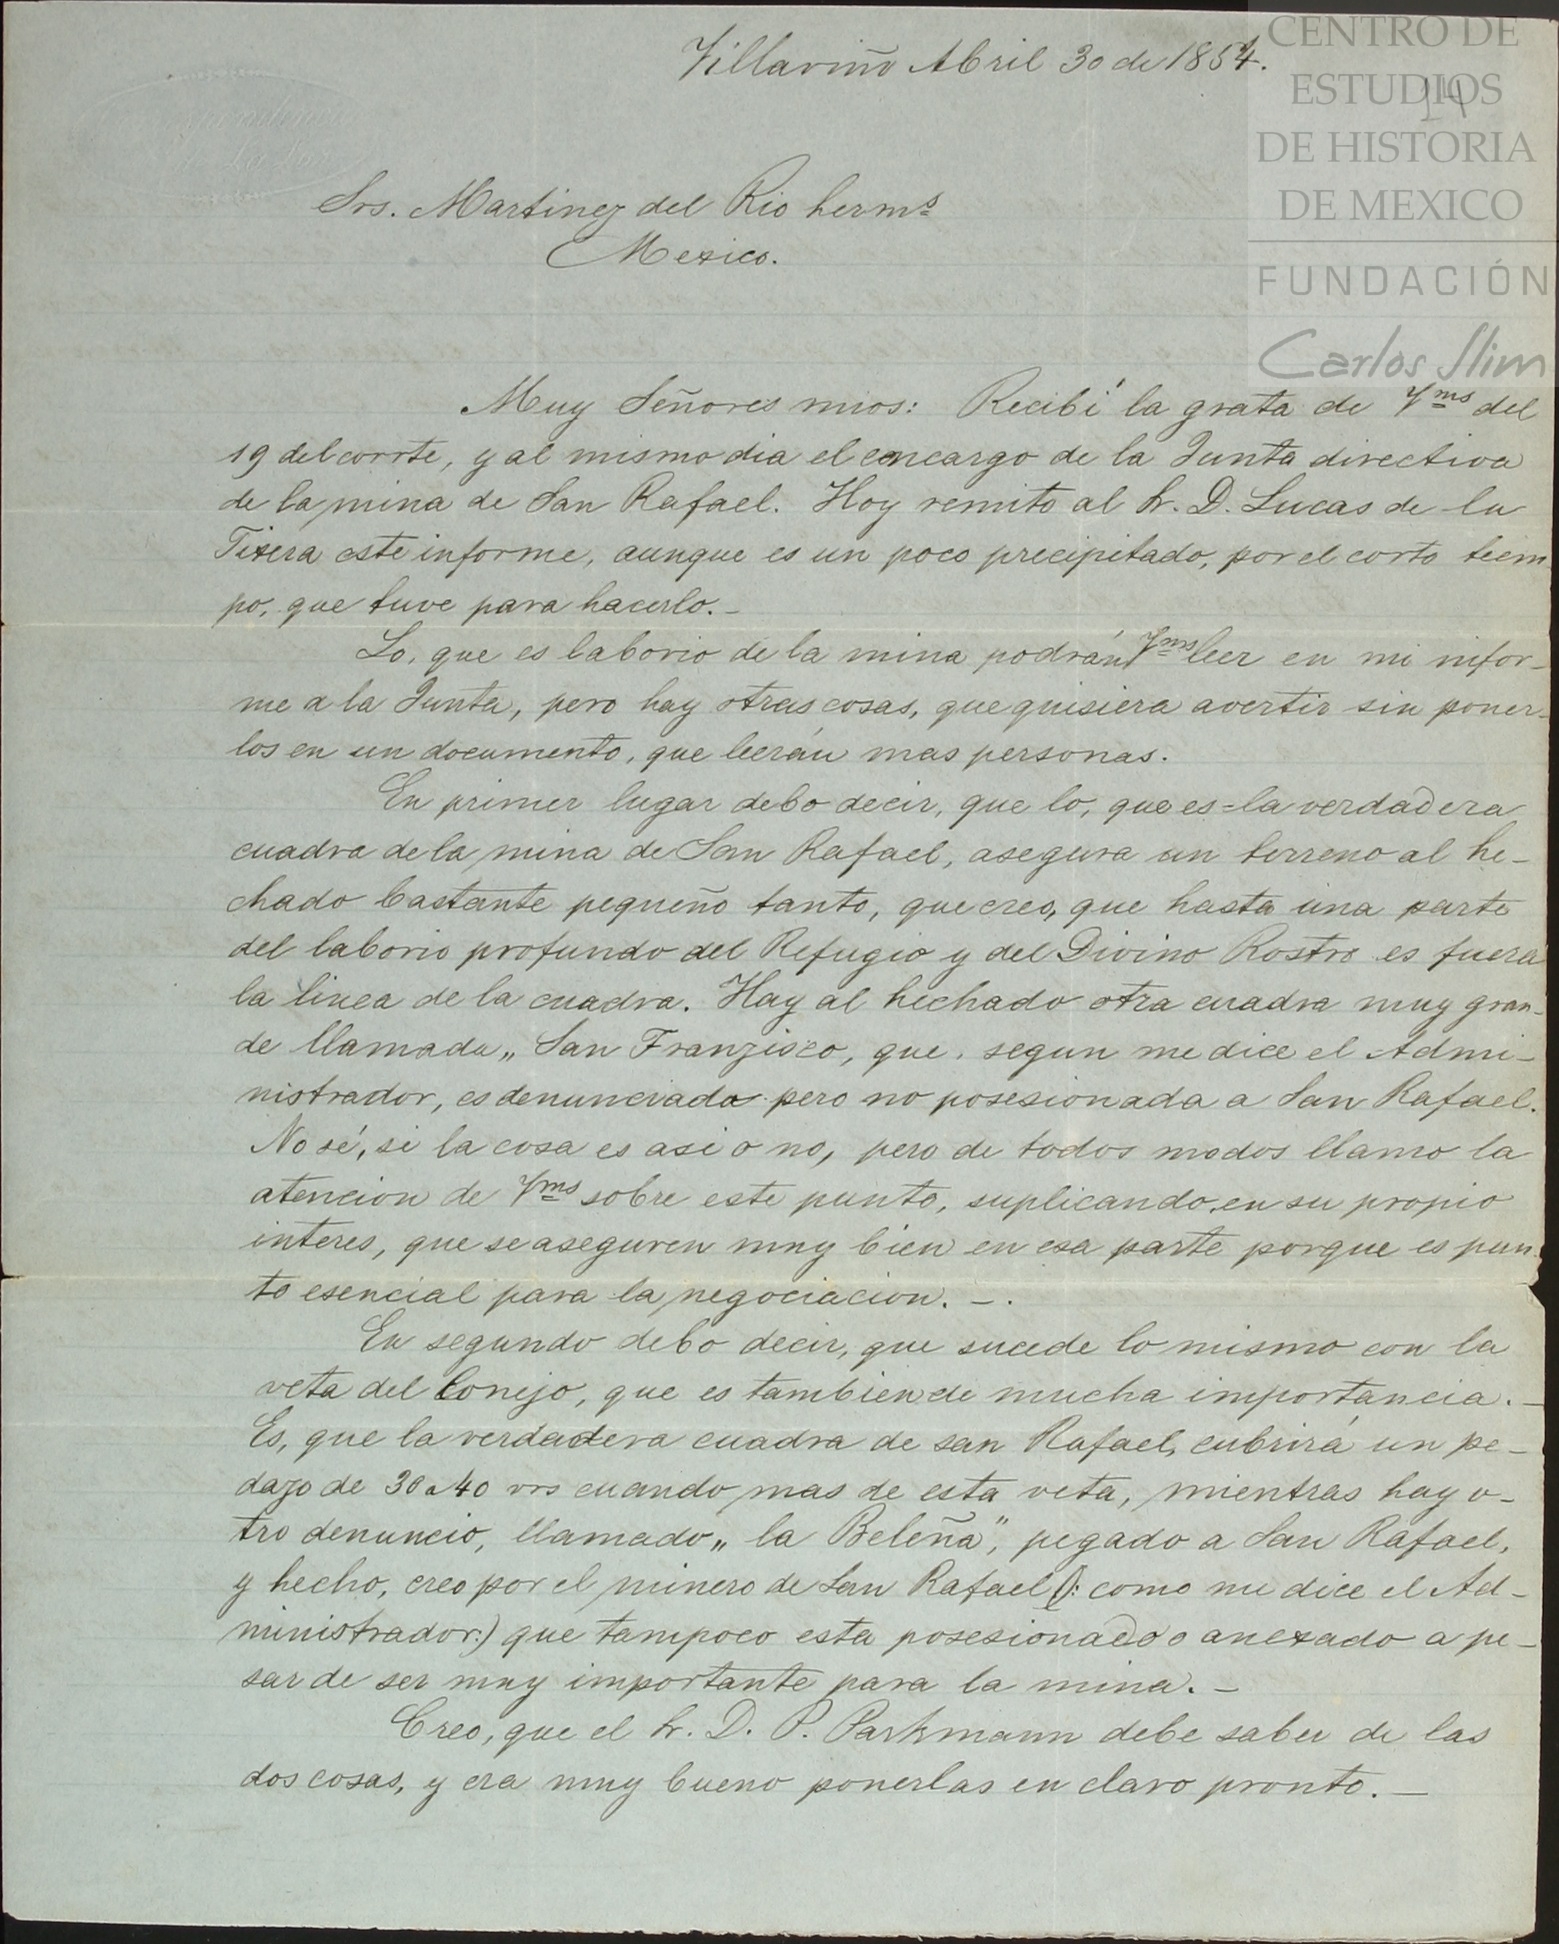 Villariño Abril 30 de 1854.
14
CENTRO DE
ESTUDIOS
DE HISTORIA
DE MEXICO
FUNDACIÓN
Carlos Slim
Srs. Martinez del Rio herms
Mexico.
Muy Señores mios: Recibí la grata de Vms del
19 del corrte, y al mismo dia el encargo de la Junta directiva
de la mina de San Rafael. Hoy remito al Sr. D. Lucas de la
Tixera este informe, aunque es un poco precipitado, por el corto tiem
po, que tuve para hacerlo. -
Lo, que es laborio de la mina podrán Vms leer en mi infor-
me a la Junta, pero hay otras cosas, que quisiera avertir sin poner-
los en un documento, que leerán mas personas.
En primer lugar debo decir, que lo, que es la verdadera
cuadra de la mina de San Rafael, asegura un terreno al he-
chado bastante pequeño tanto, que creo, que hasta una parte
del laborio profundo del Refugio y del Divino Rostro es fuera
la linea de la cuadra. Hay al hechado otra cuadra muy gran-
de llamada „ San Franzisco, que, segun me dice el Admi-
nistrador, es denunciada pero no posesionada a San Rafael.
No sé, si la cosa es asi o no, pero de todos modos llamo la
atencion de Vms sobre este punto, suplicando, en su propio
interes, que se aseguren muy bien en esa parte porque es pun
to esencial para la negociacion. - .
En segundo debo decir, que sucede lo mismo con la
veta del Conejo, que es tambien de mucha importancia. -
Es, que la verdadera cuadra de san Rafael, cubrirá un pe-
dazo de 30 a 40 vrs cuando mas de esta veta, mientras hay o-
tro denuncio, llamado „ la Beleña", pegado a San Rafael,
y hecho, creo por el minero de San Rafael (: como me dice el Ad-
ministrador:) que tampoco esta posesionado o anexado a pe-
sar de ser muy importante para la mina. -
Creo, que el Sr. D. P. Parkmann debe saber de las
dos cosas, y era muy bueno ponerlas en claro pronto. -